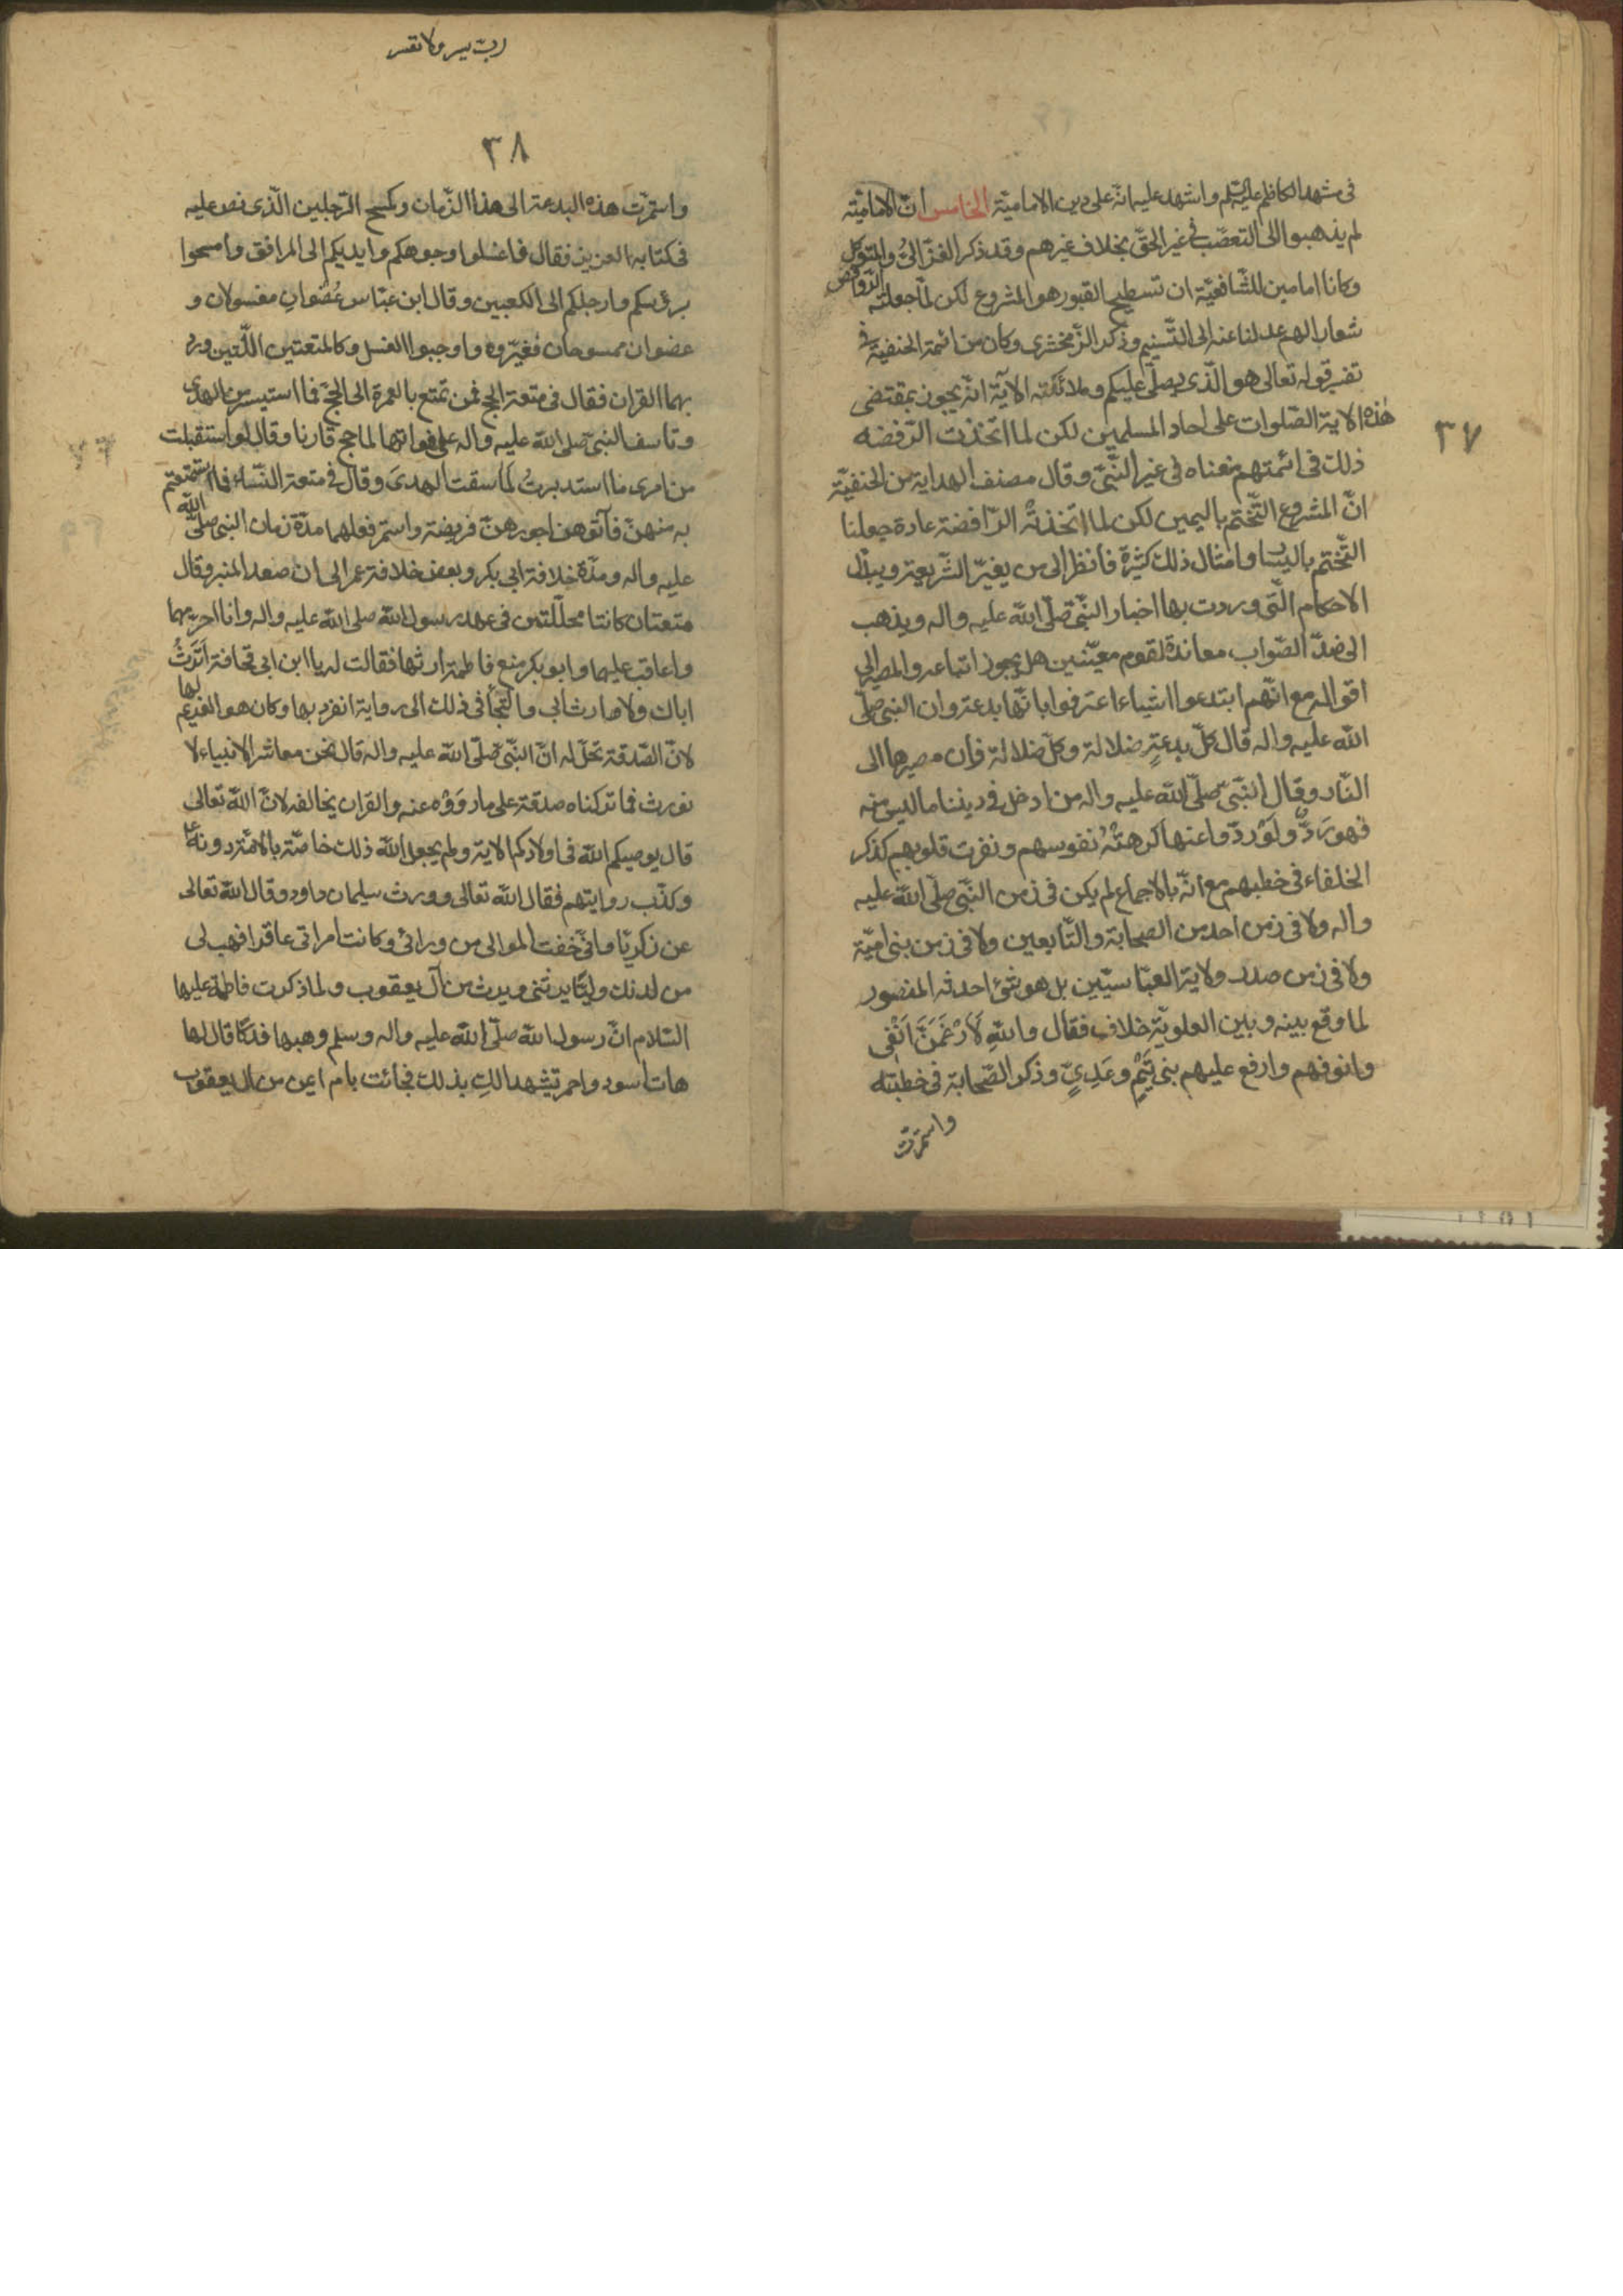 فى مشهد الكاظم عليه السّلم واشهد عليه انّه على دين الاماميّة الخامس انّ الاماميّة
لم يذهبوا الى التعصّب فى غير الحقّ بخلاف غيرهم وقد ذكر الغزّالىُّ والمتوكّل
وكانا امامين للشّافعيّة ان تسطيح القبور هو المشروع لكن لمّا جعلتْه الرّوافض
شعارا لهم عدلنا عنه الى التّسنيم وذكر الزّمخشرى وكان من ائمّة الحنفيّة فى
تفسير قوله تعالى هو الّذى يصلّى عليكم وملائكته الآية انّه يجوز بمقتضى
هذه الاية الصّلوات على احاد المسلمين لكن لما اتّخذت الرّفضه
ذلك فى ائمتهم منعناه فى غير النّبىّ وقال مصنف الهداية من الحنفيّة
انّ المشروع التّختّم باليمين لكن لما اتّخذتْه الرّافضة عادة جعلنا
التّختّم باليسار وامثال ذلك كثيرة فانظر الى من يغيّر الشّريعة ويبدّل
الاحكام الّتى وردت بها اخبار النّبىّ صلّى اللّه عليه واله ويذهب
الى ضدّ الصّواب معاندة لقوم معيّنين هل يجوز اتباعه والمصير الى
اقواله مع انّهم ابتدعوا اشياء اعترفوا بانّها بدعة وان النبى صلّى
اللّه عليه واله قال كلّ بدعةٍ ضلالة وكلّ ضلالة فان مصيرها الى
النّار وقال النّبىّ صلّى اللّه عليه واله من ادخل فى ديننا ما ليس منه
فهو رَدٌّ ولَوْ ردّوا عنها كرهتْهُ نفوسهم ونفرت قلوبهم كذكر
الخلفاء فى خطبهم مع انّه بالاجماع لم يكن فى زمن النّبى صلّى اللّه عليه
واله ولا فى زمن احد من الصحابة والتّابعين ولا فى زمن بنى اميّة
ولا فى زمن صدر ولاية العبّاسيّين بل هو شئ احدثه المنصور
لما وقع بينه وبين العلويّة خلاف فقال واللّهِ لَاُرْغِمَنَّ اَنْفى
وانوفهم وارفع عليهم بنى تَيْمٍ وعَدِىٍّ وذكر الصّحابة فى خطبته
واستمرّت
٣٧
ربّ يسر ولا تعسر
٣٨
واستمرّت هذه البدعة الى هذا الزّمان وكمسح الرّجلين الّذى نص عليه
فى كتابه العزيز فقال فاغسلوا وجوهكم وايديكم الى المرافق وامسحوا
برؤسكم وارجلكم الى الكعبين وقال ابن عبّاس عُضْوانِ مغسولان و
عضوان ممسوحان فغيّروه واوجبوا الغسل وكالمتعتين اللّتين ورد
بهما القران فقال فى متعة الحج فمن تمتع بالعمرة الى الحجّ فما استيسر من الهدى
وتاسف النبىّ صلى اللّه عليه واله على فواتها لما حج قارنا وقال لو استقبلت
من امرى ما استدبرتُ لما سقت الهدىَ وقال فى متعة النّساء فما استمتعتم
به منهنّ فآتوهن اجورهنّ فريضة واستمر فعلهما مدّة زمان النبى صلّى اللّه
عليه واله ومدّة خلافة ابى بكر وبعض خلافة عمر الى ان صعد المنبر وقال
متعتان كانتا محلّلتين فى عهد رسول اللّه صلى اللّه عليه واله وانا احرّمهما
واعاقب عليهما وابو بكر منع فاطمة ارثها فقالت له يا ابن ابى قحافة اَتَرِثُ
اباك ولا ارث ابى والتجأ فى ذلك الى رواية انفرد بها وكان هو الغريم لها
لانّ الصّدقة تحلّ له انّ النّبىّ صلّى اللّه عليه واله قال نحن معاشر الانبياء لا
نورث فما تركناه صدقة على ما رووْه عنه والقران يخالفه لانّ اللّه تعالى
قال يوصيكم اللّه فى اولادكم الاية ولم يجعل اللّه ذلك خاصّة بالامّة دونهعم
وكذّب روايتهم فقال اللّه تعالى وورث سليمان داود وقال اللّه تعالى
عن زكريّا وانّى خفت الموالى من ورائى وكانت امراتى عاقرا فهب لى
من لدنك وليّا يرثنى ويرث من آل يعقوب ولما ذكرت فاطمة عليها
السّلام انّ رسول اللّه صلّى اللّه عليه واله وسلم وهبها فدكا قال لها
هات اسود واحمر تشهد لكِ بذلك فجائت بام ايمن من آل يعقوب